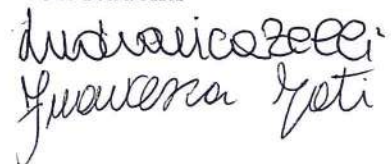 Ludovica Zelli
Francesca Goti